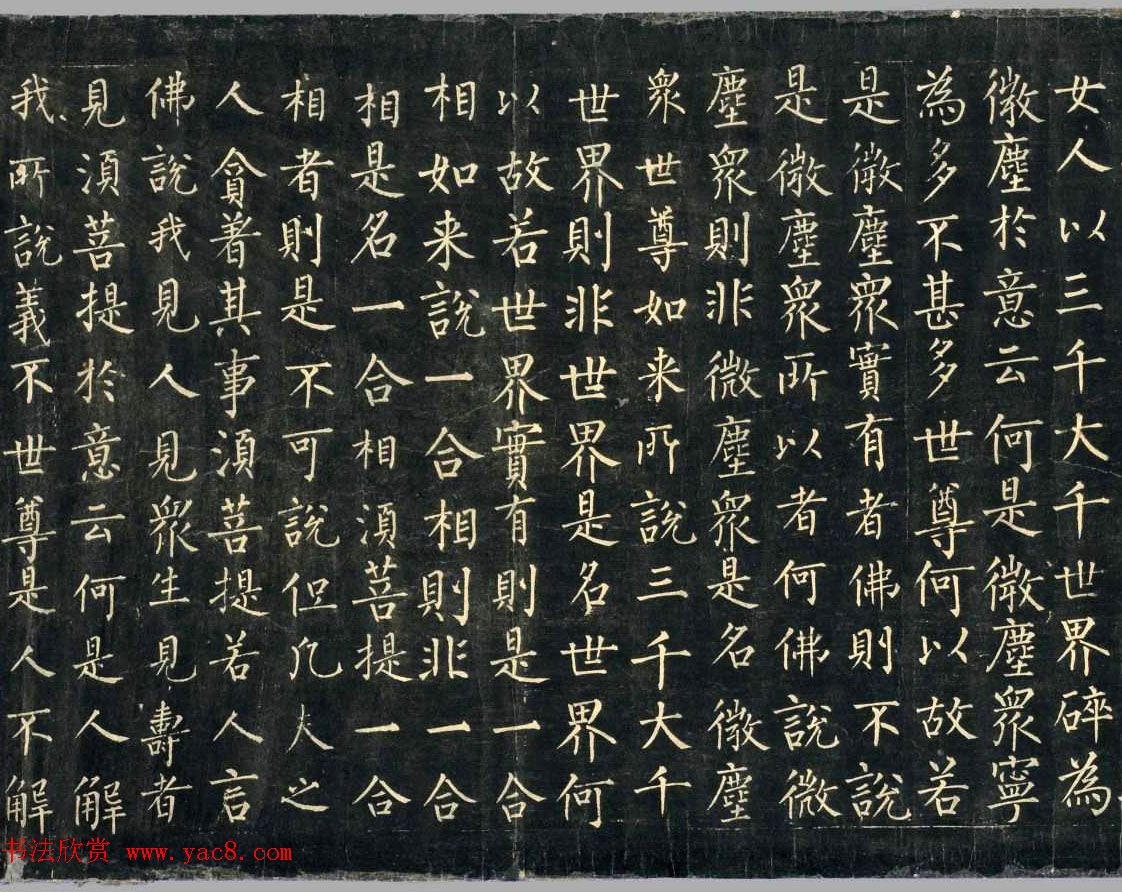 女人以三千大千世界碎為
微塵於意云何是微塵眾寧
為多不甚多世尊何以故若
是微塵眾實有者佛則不說
是微塵眾所以者何佛說微
塵眾則非微塵眾是名微塵
眾世尊如来所說三千大千
世界則非世界是名世界何
以故若世界實有則是一合
相如来說一合相則非一合
相是名一合相須菩提一合
相者則是不可說但凡夫之
人貪着其事須菩提若人言
佛說我見人見眾生見壽者
見須菩提於意云何是人解
我所說義不世尊是人不解
书法欣赏 www.yac8.com